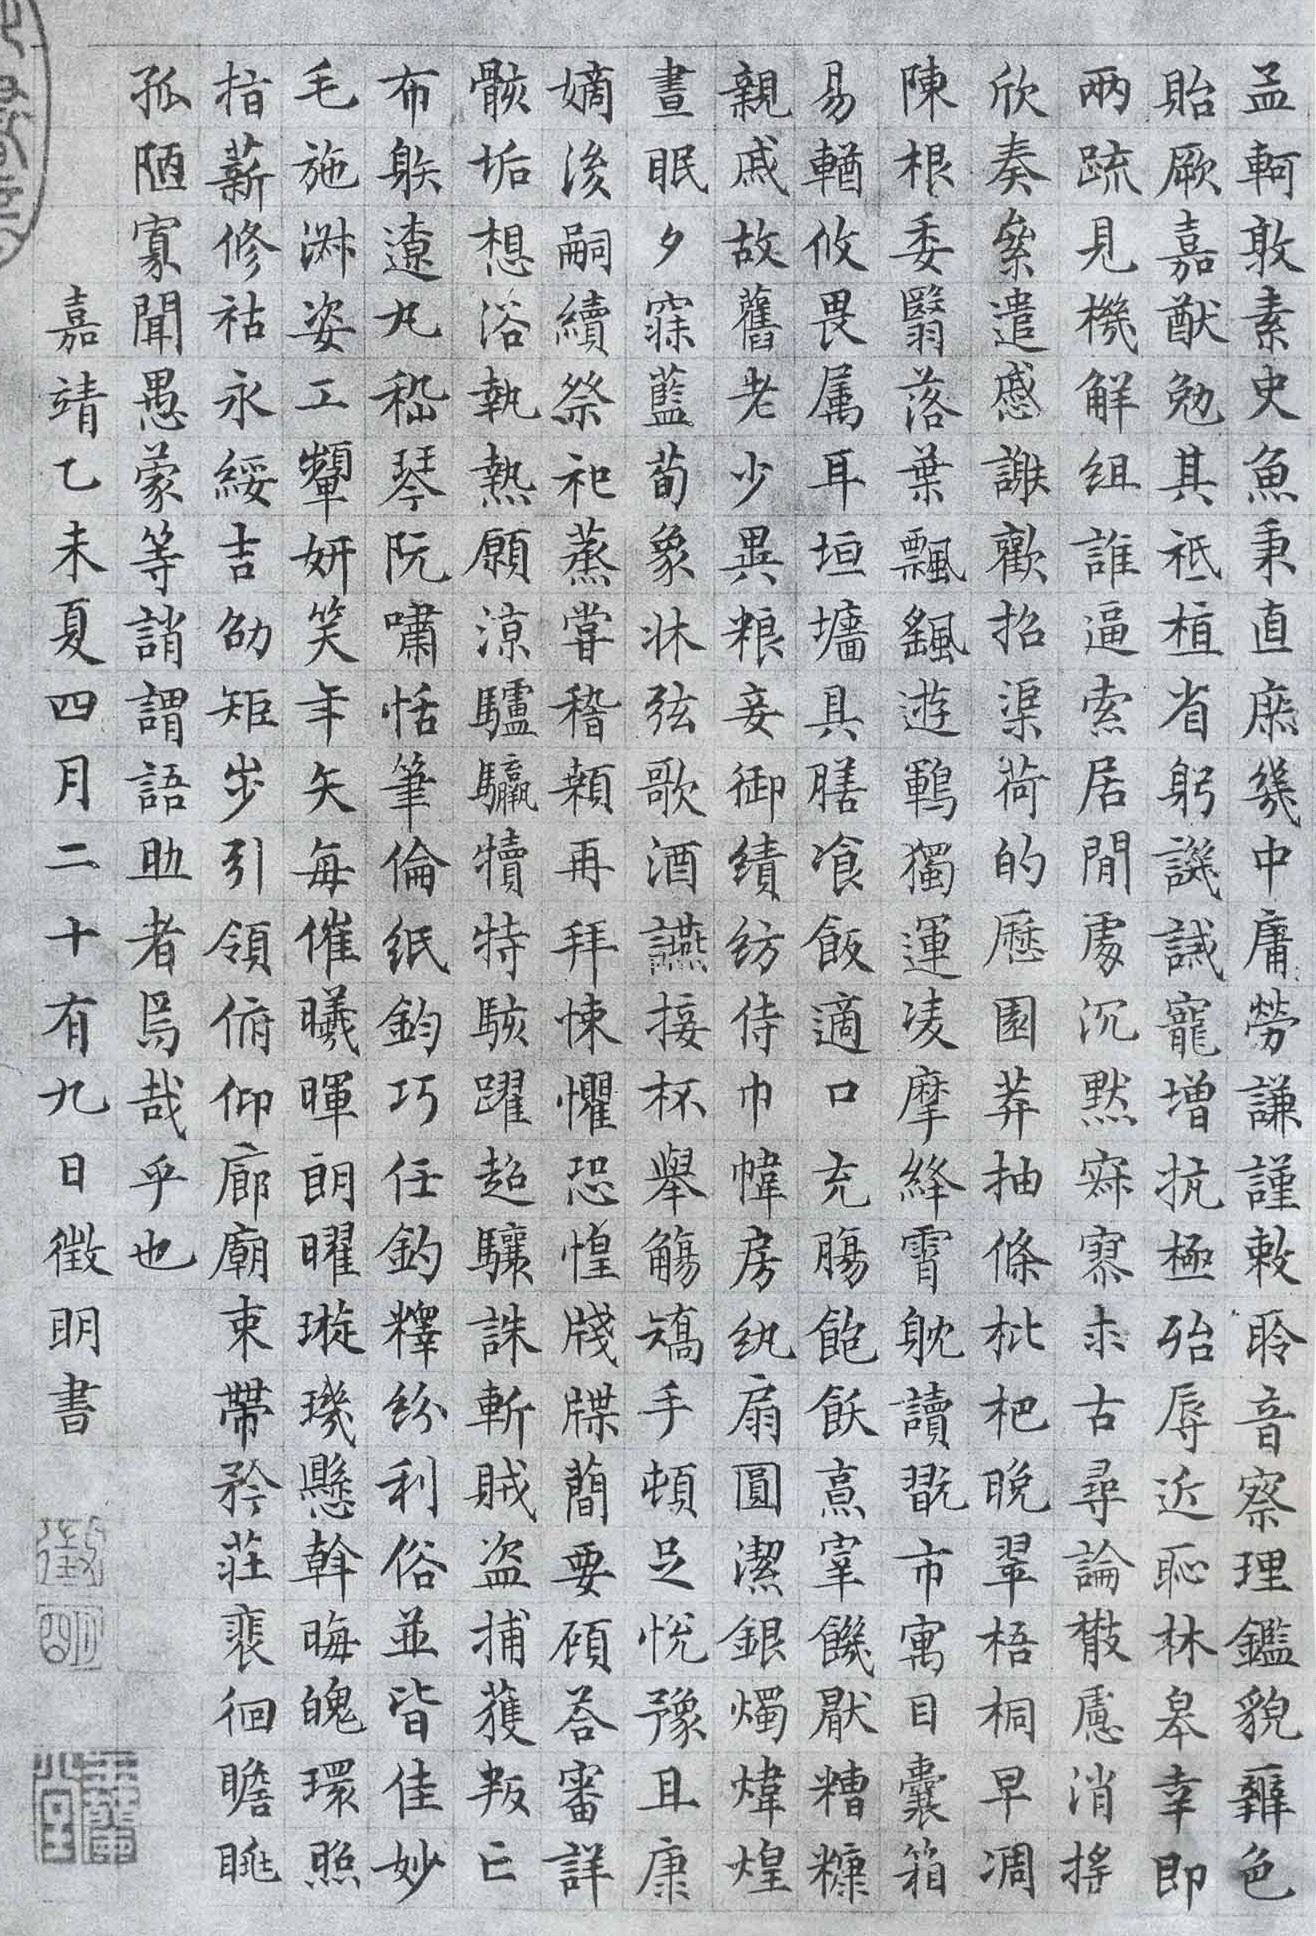 孟軻敦素史魚秉直庶幾中庸勞謙謹敕聆音察理鑑貌辨色
貽厥嘉猷勉其祗植省躬譏誡寵增抗極殆辱近恥林皋幸即
兩疏見機解組誰逼索居閒處沉默寂寥求古尋論散慮逍搖
欣奏絫遣慼謝歡招渠荷的歷園莽抽條枇杷晚翠梧桐早凋
陳根委翳落葉飄颻遊鵾獨運凌摩絳霄躭讀翫市寓目囊箱
易輶攸畏属耳垣墻具膳飡飯適口充腸飽飫烹宰饑厭糟糠
親戚故舊老少異粮妾御績紡侍巾幃房紈扇圓潔銀燭煒煌
晝眠夕寐藍荀象牀弦歌酒讌接杯舉觴矯手頓足悅豫且康
嫡後嗣續祭祀蒸嘗稽顙再拜悚懼恐惶牋牒簡要顧荅審詳
骸垢想浴執熱願涼驢驘犢特駭躍超驤誅斬賊盜捕獲叛亡
布躲遼丸嵇琴阮嘯恬筆倫紙鈞巧任釣釋紛利俗並皆佳妙
毛施淑姿工顰妍笑年矢每催曦暉朗曜璇璣懸斡晦魄環照
指薪修祜永綏吉劭矩步引領俯仰廊廟束帶矜莊裴徊瞻眺
孤陋寡聞愚蒙等誚謂語助者焉哉乎也
嘉靖乙未夏四月二十有九日徵明書
徵明
玉蘭堂